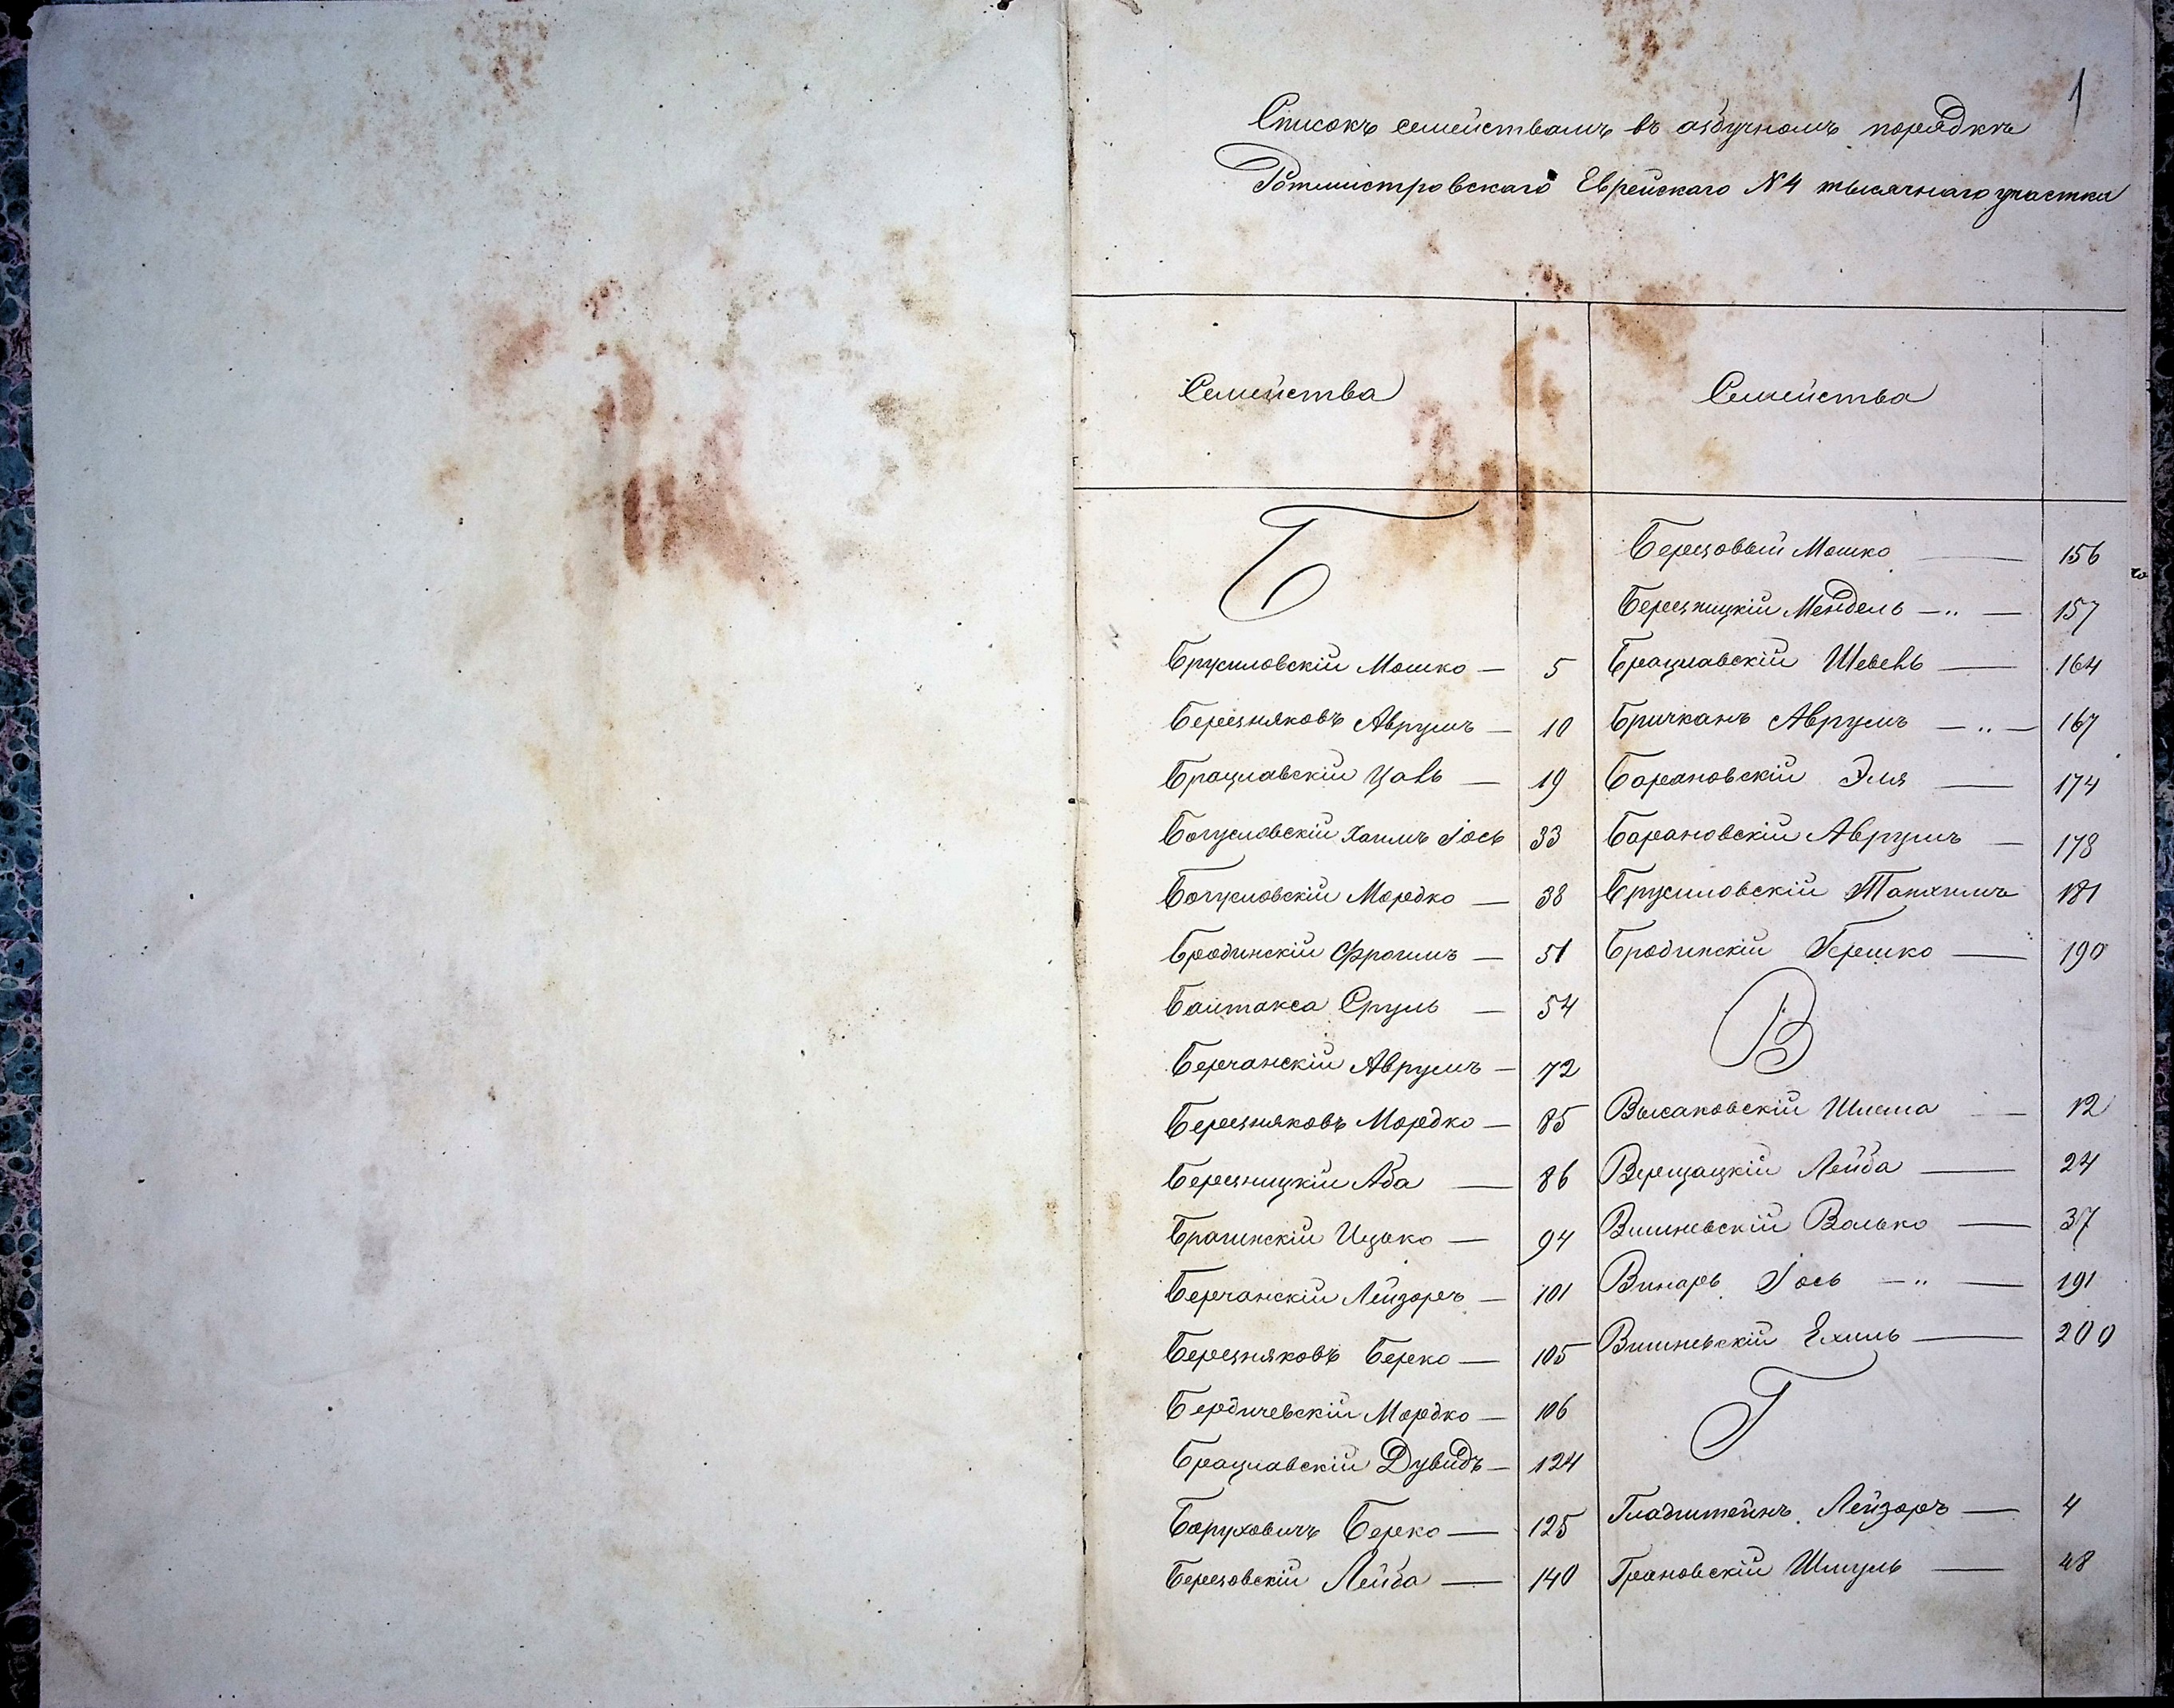 1
Списокъ семействамъ въ азбучномъ порядкѣ
Ротмистровскаго Еврейскаго №4 тысячнаго участка
Семейства
Б
Брусиловскій Мошко — 5
Березняковъ Аврумъ — 10
Брацлавскій Цаль — 19
Богуславскій Хаимъ Іось 33
Богуславскій Мордко — 38
Бродинскій Фроимъ — 51
Байтакса Сруль — 54
Берчанскій Аврумъ — 72
Березняковъ Мордко — 85
Березницкій Аба — 86
Брагинскій Ицько — 94
Берчанскій Лейзоръ — 101
Березняковъ Берко — 105
Бердичевскій Мордко — 106
Брацлавскій Дувидъ — 124
Боруховичъ Берко — 125
Березовскій Лейба — 140
Семейства
Березовый Мошко — 156
Березницкій Мендель — „ — 157
Брацлавскій 164
Бричканъ Аврумъ — „ — 167
Барановскій Эля — 174
Барановскій Аврумъ — 178
Брусиловскій Танхимъ 181
Бродинскій Гершко — 190
В
Высаковскій Шлема — 12
Верещацкій Лейба — 24
Вишневскій Волько — 37
Винарь Іось — „ — 191
Вишневскій Ехиль — 200
Г
Гладштейнъ Лейзоръ — 4
Грановскій Шмуль — 48